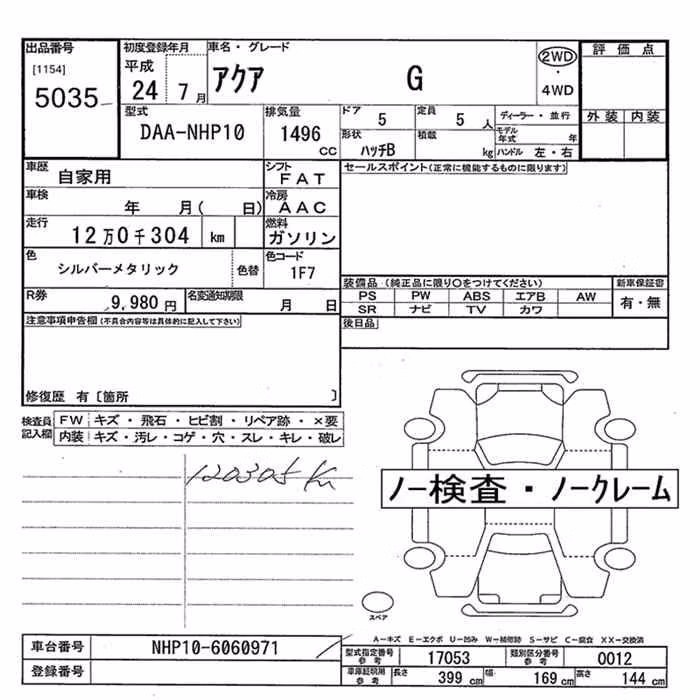 出品番号 初度登録年月 車名・グレード 評価点
[1154] 平成 アクア G 2WD・4WD
5035 24 7月 外装 内装
型式 排気量 ドア 5 定員 5人 ディーラー・並行
DAA-NHP10 1496cc 形状 ハッチB 積載 kg モデル年式 年
ハンドル 左・右
車歴 自家用 シフト FAT セールスポイント(正常に機能するものに限ります)
車検 年 月( 日) 冷房 AAC
走行 12万0千304 km 燃料 ガソリン
色 シルバーメタリック 色替 色コード 1F7
装備品(純正品に限り○をつけてください) 新車保証書
R券 9,980円 名変通知期限 月 日 PS PW ABS エアB AW 有・無
SR ナビ TV カワ
注意事項申告欄(不具合内容等は具体的に記入して下さい) 後日品
修復歴 有〔箇所 〕
検査員記入欄 FW キズ・飛石・ヒビ割・リペア跡・×要
内装 キズ・汚レ・コゲ・穴・スレ・キレ・破レ
120305 Km
ノー検査・ノークレーム
スペア
A-キズ E-エクボ U-凹み W-補修跡 S-サビ C-腐食 XX-交換済
車台番号 NHP10-6060971 型式指定番号参考 17053 類別区分番号参考 0012
登録番号 車庫証明用参考 長さ 399cm 幅 169cm 高さ 144cm